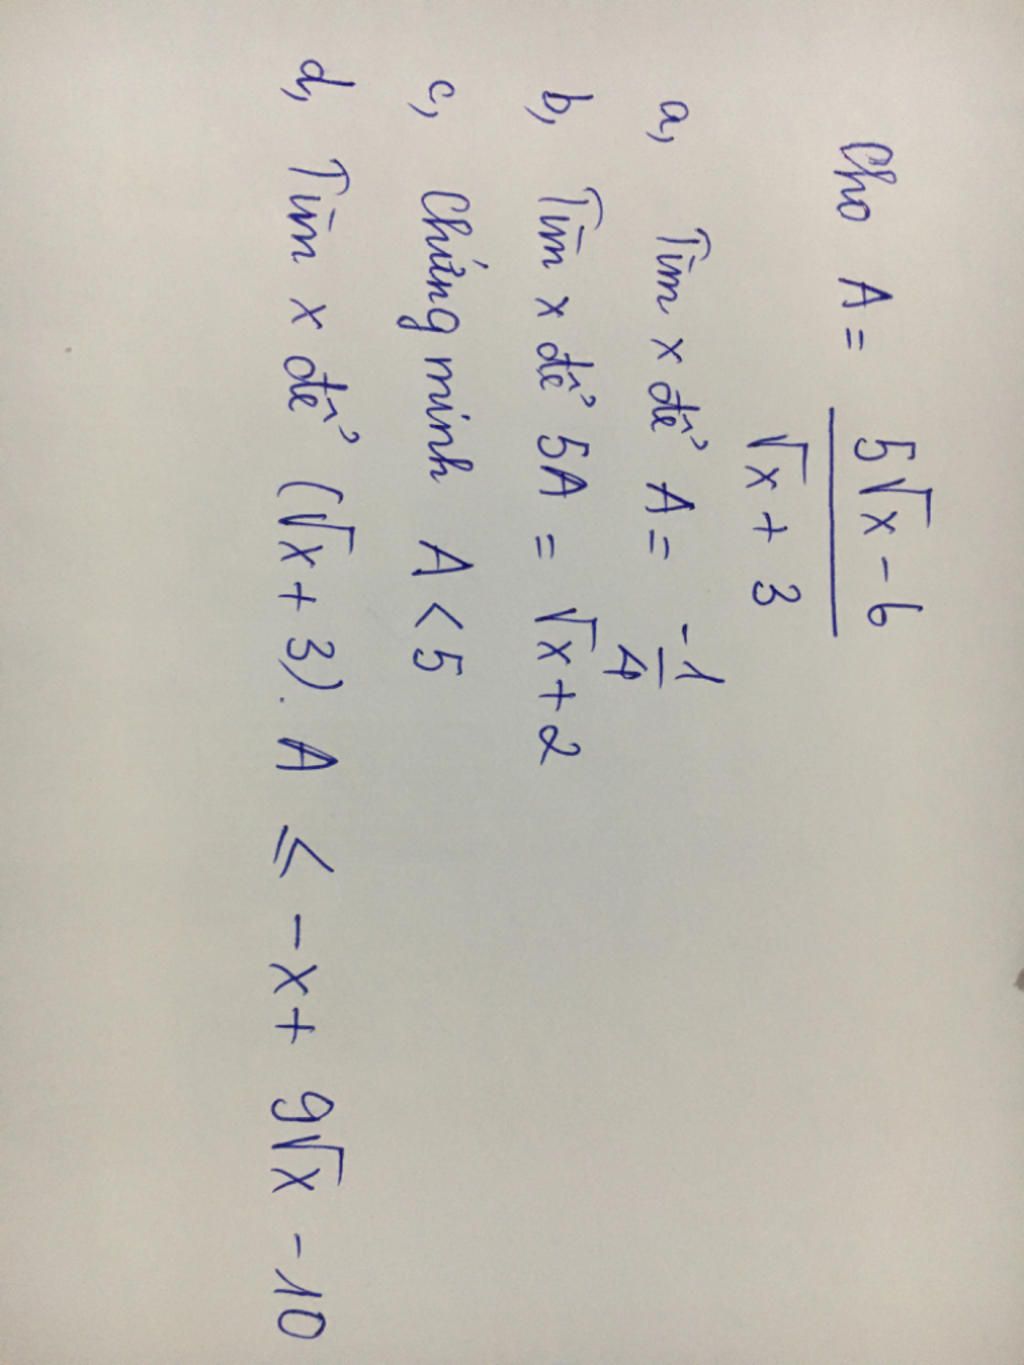 Cho A = (5√x - 6) / (√x + 3)
a, Tìm x để A = -1/4
b, Tìm x để 5A = √x + 2
c, Chứng minh A < 5
d, Tìm x để (√x + 3). A ≤ -x + 9√x - 10